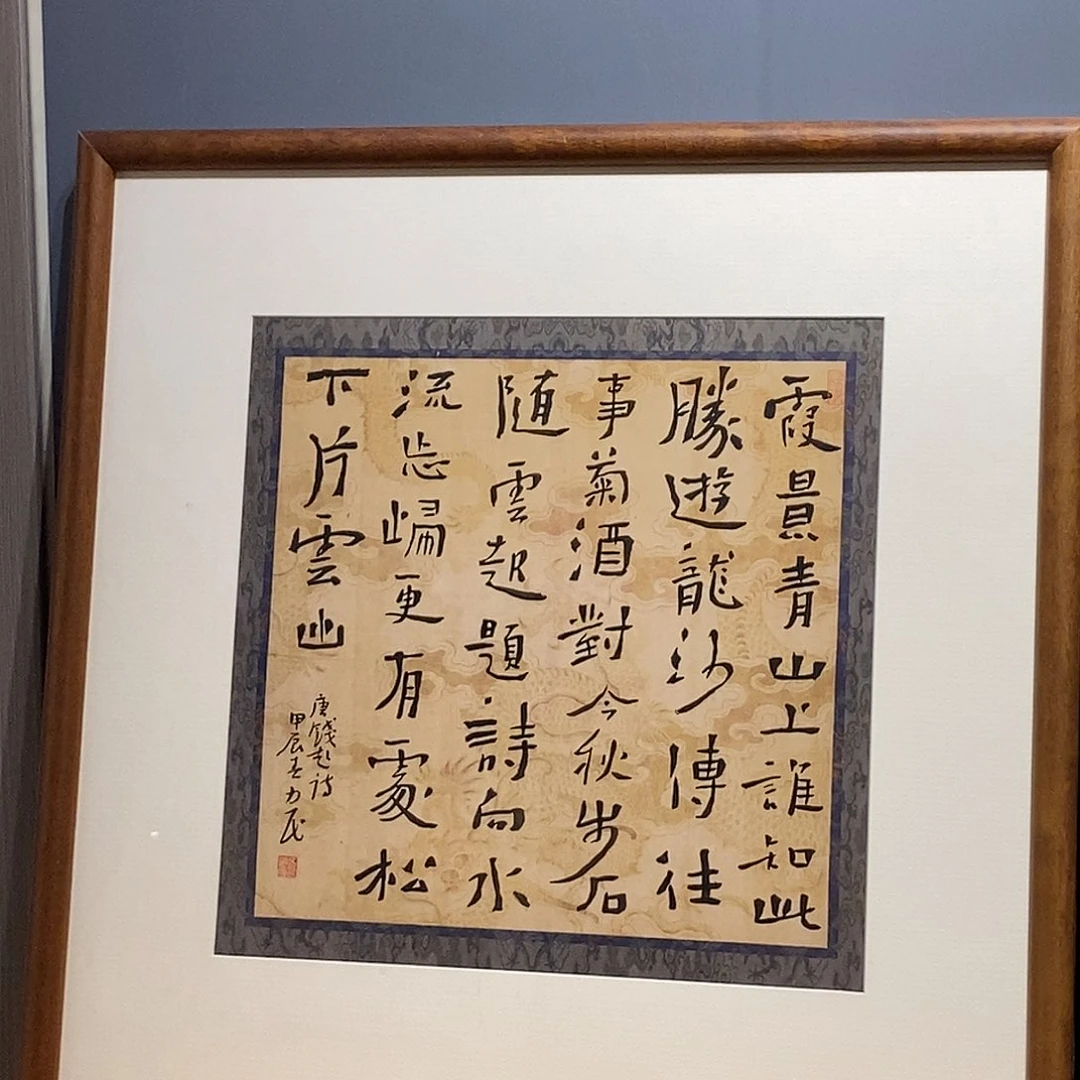 霞景青山上誰知此
勝遊龍沙傳往
事菊酒對今秋步石
随雲起題詩向水
流忘歸更有處松
下片雲幽
唐錢起詩
甲辰力民